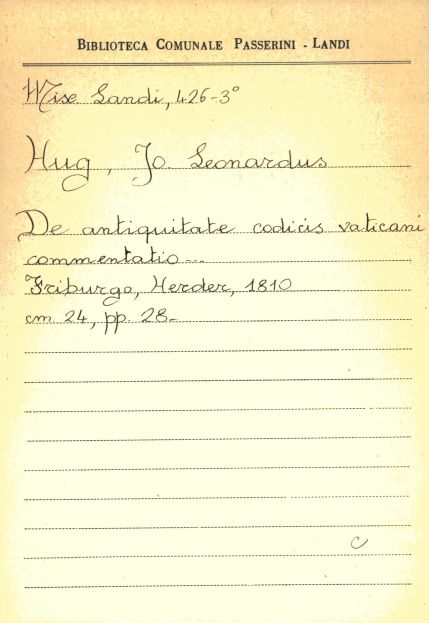 BIBLIOTECA COMUNALE PASSERINI - LANDI
Misc Landi, 426-3°
Hug, Jo. Leonardus
De antiquitate codicis vaticani
commentatio...
Friburgo, Herder, 1810
cm 24, pp. 28-
c